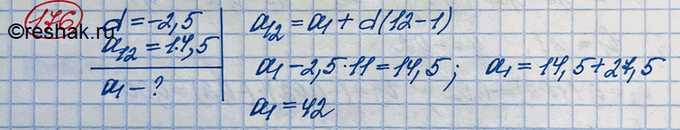 ©reshak.ru
176
d = -2,5
a₁₂ = 14,5
a₁ - ?
a₁₂ = a₁ + d(12-1)
a₁ - 2,5·11 = 14,5; a₁ = 14,5 + 27,5
a₁ = 42